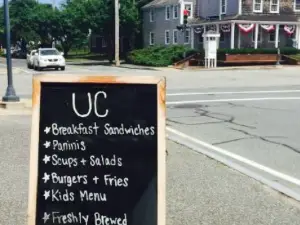 UC
*Breakfast Sandwiches
*Paninis
*Scups + Salads
*Burgers + Fries
*Kids Menu
*Freshly Brewed